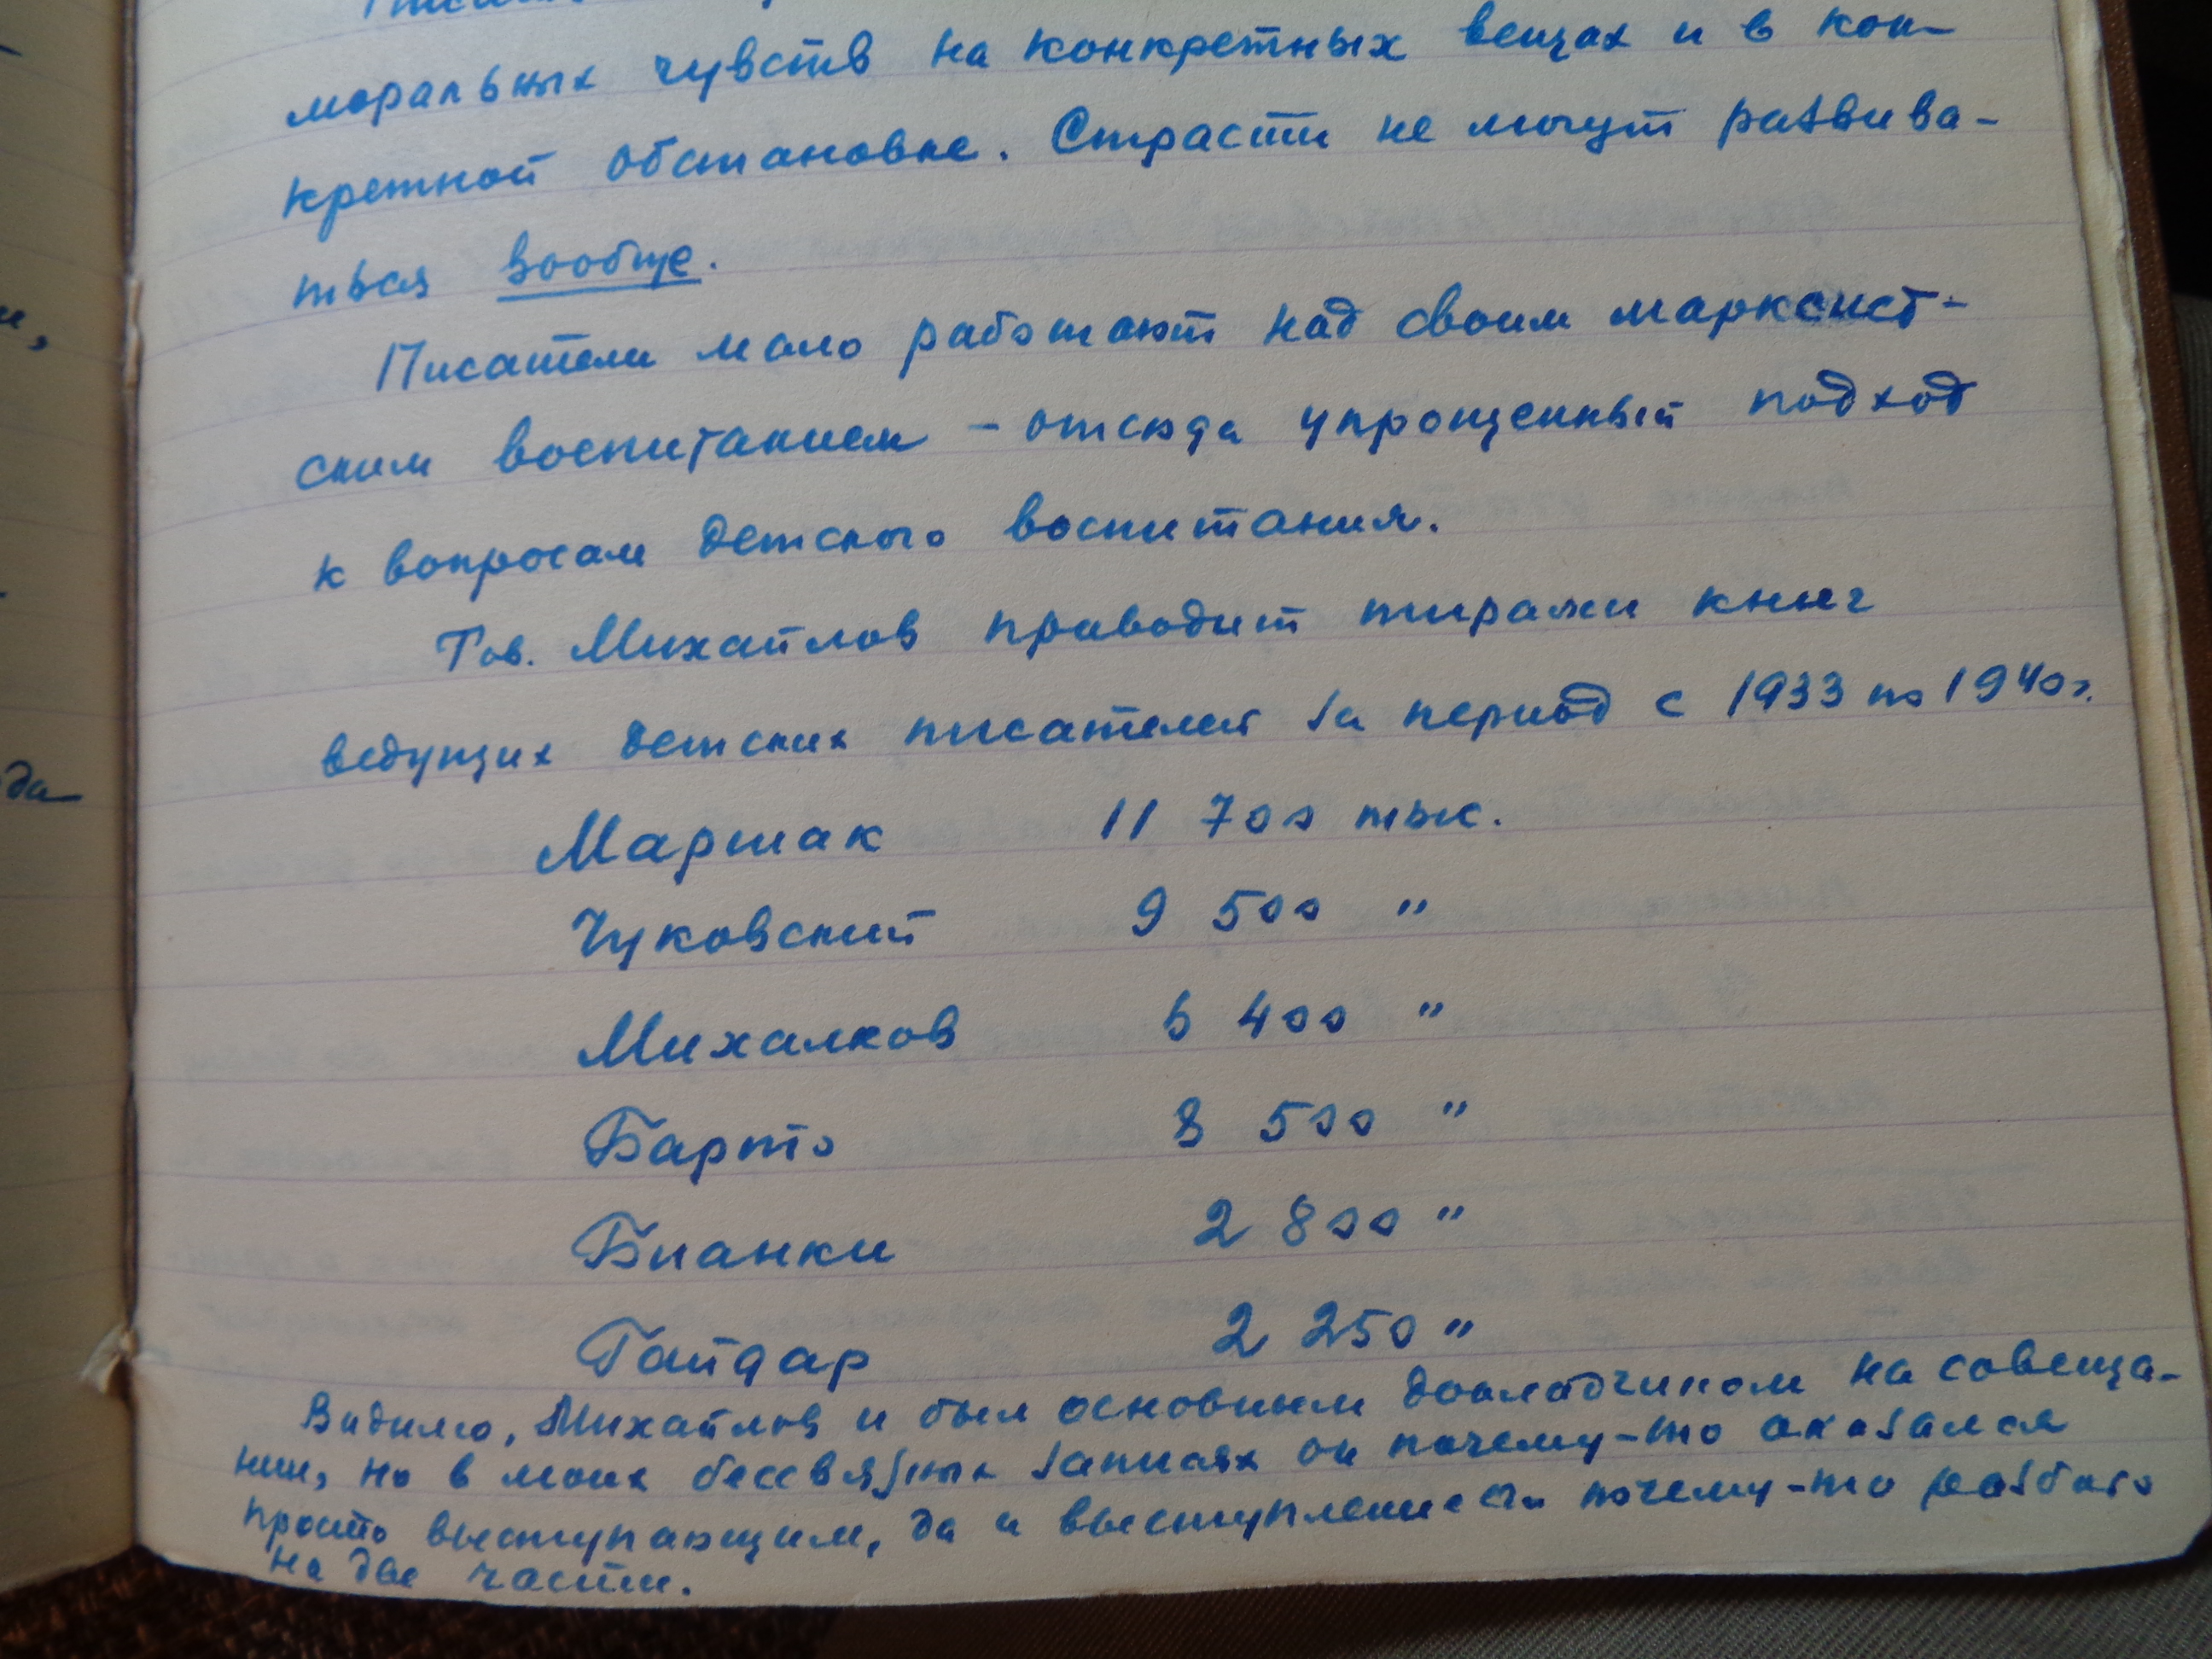 моральных чувств на конкретных вещах и в кон-
кретной обстановке. Страсти не могут развива-
ться вообще.
Писатели мало работают над своим марксист-
ским воспитанием – отсюда упрощенный подход
к вопросам детского воспитания.
Тов. Михайлов приводит тиражи книг
ведущих детских писателей за период с 1933 по 1940 г.
Маршак 11 700 тыс.
Чуковский 9 500 "
Михалков 6 400 "
Барто 8 500 "
Бианки 2 800 "
Гайдар 2 250 "
Видимо, Михайлов и был основным докладчиком на совеща-
нии, но в моих бессвязных записях он почему-то оказался
просто выступающим, да и выступление его почему-то разбито
на две части.
да